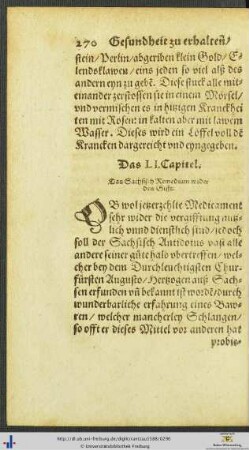 270 Gesundheit zu erhalten/
stein/Perlin/abgeriben klein Gold/E-
lendsklawen/eins jeden so viel alß des
andern eyn zu gebē. Diese stuck alle mit-
einander zerstossen sie in einem Mörsel/
vnd vermischen es in hitzigen Kranckhei
ten mit Rosen: in kalten aber mit lawem
Wasser. Dieses wird ein Löffel voll dē
Krancken dargereicht vnd eyngegeben.
Das LI. Capitel.
Das Sächsisch Remedium wider
den Gifft.
OB wol jetzerzehlte Medicament
sehr wider die vergifftung nutz-
lich vnnd dienstlich sind/jedoch
soll der Sachsisch Antidotus vast alle
andere seiner güte halb vbertreffen/wel-
cher bey dem Durchleuchtigsten Chur-
fürsten Augusto/Hertzogen auß Sach-
sen erfunden vñ bekannt ist wordē/durch
wunderbarliche erfahrung eines Baw-
ren/welcher mancherley Schlangen/
so offt er dieses Mittel vor anderen hat
probie-
http://dl.ub.uni-freiburg.de/diglit/
© Universitätsbibliothek Freiburg